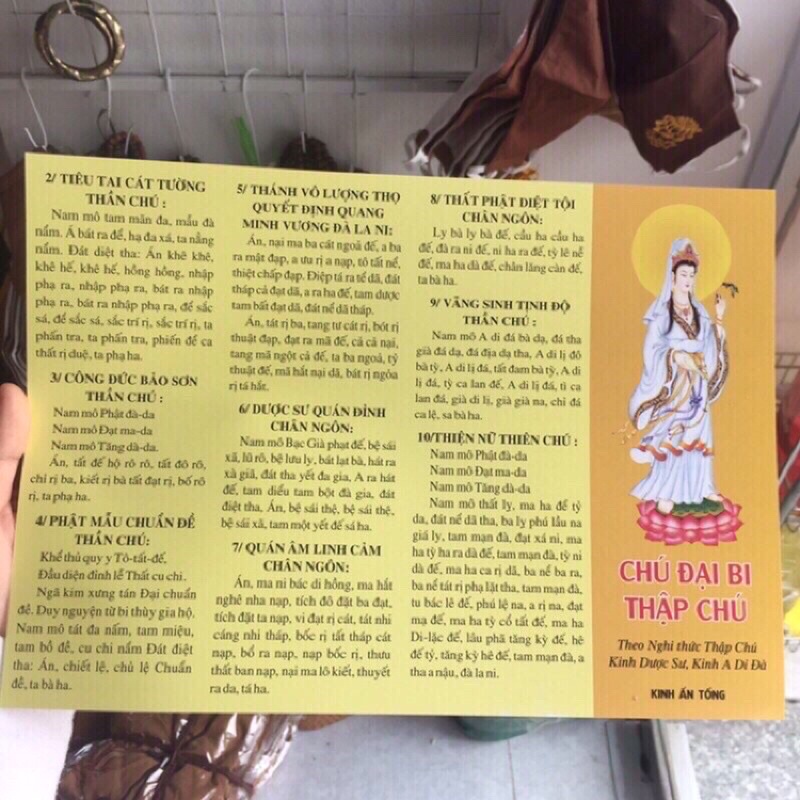 2/ TIÊU TAI CÁT TƯỜNG
THẦN CHÚ :
Nam mô tam mãn đa, mẫu đà
nẩm. Á bát ra để, hạ đa xá, ta nẳng
nẩm. Đát điệt tha: Án khê khê,
khê hế, khê hế, hồng hồng, nhập
phạ ra, nhập phạ ra, bát ra nhập
phạ ra, bát ra nhập phạ ra, để sắc
sá, để sắc sá, sắc trí rị, sắc trí rị, ta
phấn tra, ta phấn tra, phiến để ca
thất rị duệ, ta phạ ha.
3/ CÔNG ĐỨC BẢO SƠN
THẦN CHÚ :
Nam mô Phật đà-da
Nam mô Đạt ma-da
Nam mô Tăng dà-da.
Án, tất đế hộ rô rô, tất đô rô,
chỉ rị ba, kiết rị bà tất đạt rị, bố rô
rị, ta phạ ha.
4/ PHẬT MẪU CHUẨN ĐỀ
THẦN CHÚ:
Khể thủ quy y Tô-tất-đế.
Đầu diện đỉnh lễ Thất cu chi.
Ngã kim xưng tán Đại chuẩn
đề. Duy nguyện từ bi thùy gia hộ.
Nam mô tát đa nẩm, tam miệu,
tam bồ đề, cu chi nẩm Đát điệt
tha: Án, chiết lệ, chủ lệ Chuẩn
đề, ta bà ha.
5/ THÁNH VÔ LƯỢNG THỌ
QUYẾT ĐỊNH QUANG
MINH VƯƠNG ĐÀ LA NI:
Án, nại ma ba cát ngoã đế, a ba
ra mật đạp, a ưu rị a nạp, tô tất nể,
thiệt chấp đạp. Điệp tá ra tể dã, đát
tháp cả đạt dã, a ra ha đế, tam dược
tam bất đạt dã, đát nể dã tháp.
Án, tát rị ba, tang tư cát rị, bót rị
thuật đạp, đạt ra mã đế, cả cả nại,
tang mã ngột cả đế, ta ba ngoả, tỷ
thuật đế, mã hắt nại dã, bát rị ngỏa
rị tá hắt.
6/ DƯỢC SƯ QUÁN ĐỈNH
CHÂN NGÔN:
Nam mô Bạc Già phạt đế, bệ sái
xã, lũ rô, bệ lưu ly, bát lạt bà, hát ra
xà giã, đát tha yết đa gia, A ra hát
đế, tam diểu tam bột đà gia, đát
điệt tha, Án, bệ sái thệ, bệ sái thệ,
bệ sái xã, tam một yết đế sá ha.
7/ QUÁN ÂM LINH CẢM
CHÂN NGÔN:
Án, ma ni bác di hồng, ma hắt
nghê nha nạp, tích đô đặt ba đạt,
tích đặt ta nạp, vi đạt rị cát, tát nhi
cáng nhi tháp, bốc rị tất tháp cát
nạp, bổ ra nạp, nạp bốc rị, thưu
thất ban nạp, nại ma lô kiết, thuyết
ra da, tá ha.
8/ THẤT PHẬT DIỆT TỘI
CHÂN NGÔN:
Ly bà ly bà đế, cầu ha cầu ha
đế, đà ra ni đế, ni ha ra đế, tỳ lê nễ
đế, ma ha dà đế, chân lăng càn đế,
ta bà ha.
9/ VÃNG SINH TỊNH ĐỘ
THẦN CHÚ :
Nam mô A di đá bà dạ, đá tha
già đá dạ, đá địa dạ tha, A di lị đô
bà tỳ, A di lị đá, tất đam bà tỳ, A di
lị đá, tỳ ca lan đế, A di lị đá, tì ca
lan đá, già di lị, già già na, chỉ đá
ca lệ, sa bà ha.
10/THIỆN NỮ THIÊN CHÚ :
Nam mô Phật đà-da
Nam mô Đạt ma-da
Nam mô Tăng dà-da
Nam mô thất ly, ma ha để tỷ
da, đát nể dã tha, ba ly phú lầu na
giá ly, tam mạn đà, đạt xá ni, ma
ha tỳ ha ra dà đế, tam mạn đà, tỳ ni
dà đế, ma ha ca rị dã, ba nể ba ra,
ba nể tát rị phạ lặt tha, tam mạn đà,
tu bác lê đế, phú lệ na, a rị na, đạt
mạ đế, ma ha tỳ cổ tất đế, ma ha
Di-lặc đế, lâu phả tăng kỳ đế, hê
đế tỷ, tăng kỳ hê đế, tam mạn đà, a
tha a nậu, đà la ni.
CHÚ ĐẠI BI
THẬP CHÚ
Theo Nghi thức Thập Chú
Kinh Dược Sư, Kinh A Di Đà
KINH ẤN TỐNG